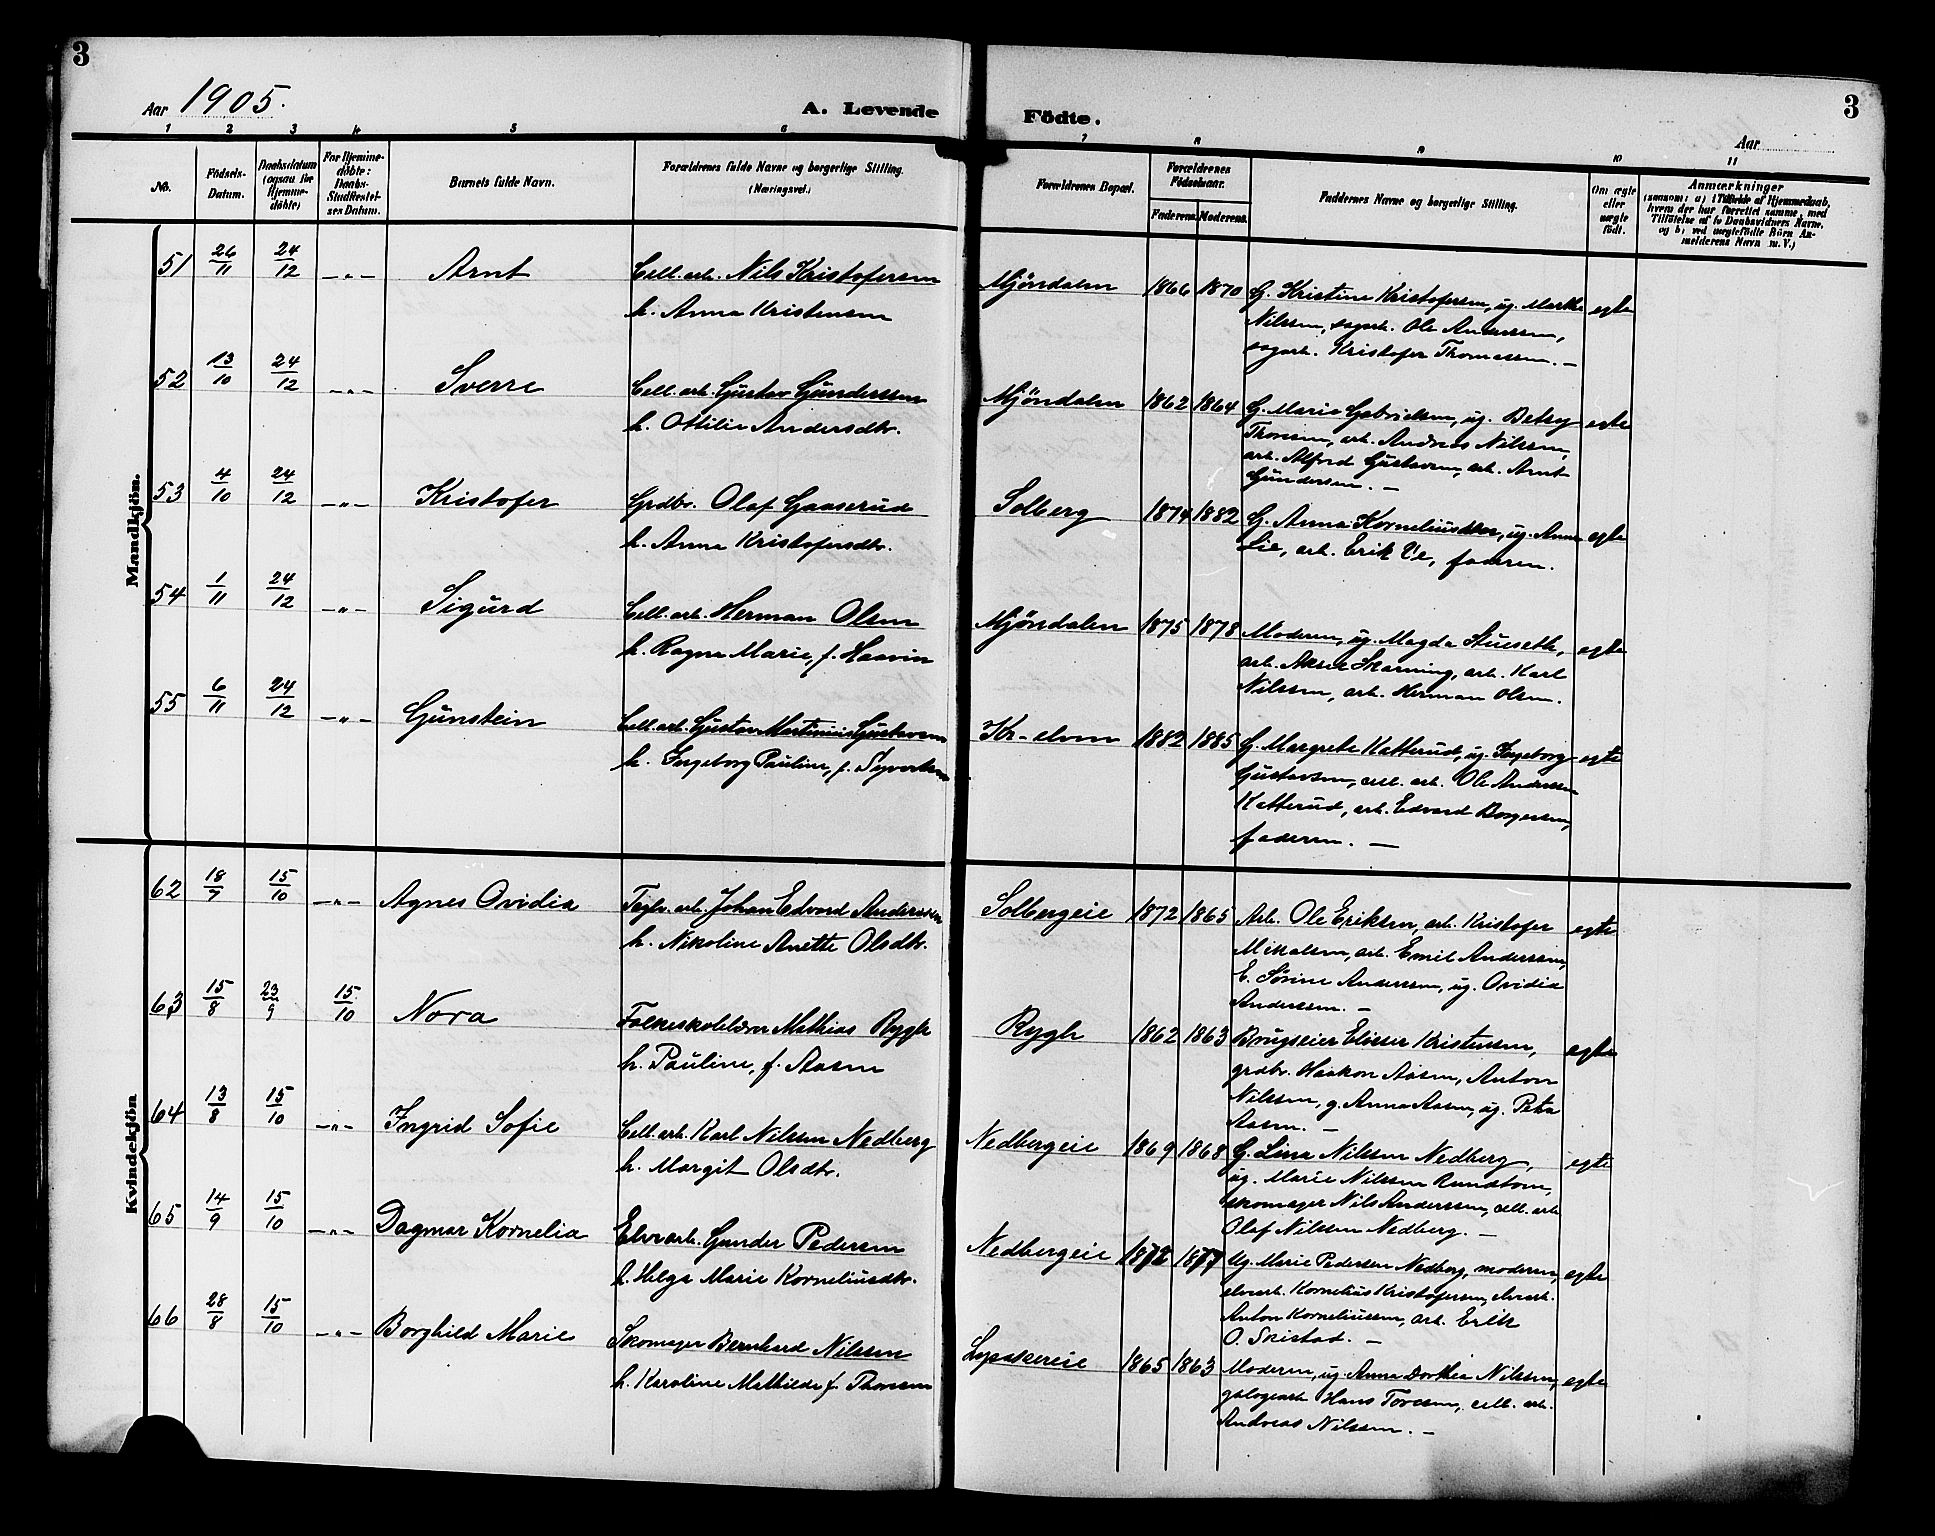 3
3
Aar 1905.
A. Levende Födte.
Aar
1 2 3 4 5 6 7 8 9 10 11
No.
Födsels-Datum.
Daabsdatum (ogsaa for Hjemme-döbte)
For Hjemme-döbte: Daabs-Stadfæstel-ses Datum.
Barnets fulde Navn.
Forældrenes fulde Navne og borgerlige Stilling. (Næringsvei.)
Forældrenes Bopæl.
Forældrenes Födselsaar.
Faderens. Moderens.
Faddernes Navne og borgerlige Stilling.
Om ægte eller uægte födt.
Anmærkninger
(saasom: a) i Tilfælde af Hjemmedaab,
hvem der har forrettet samme, med
Tilföielse af to Daabsvidners Navne,
og b) ved uægtefödte Börn An-
melderens Navn m. V.)
Mandkjön.
51 26/11 24/12 -„- Arnt
Cell. arb. Nils Kristofersen
h. Anna Kristensen
Mjöndalen 1866 1870
G. Kristine Kristofersen, ug. Marthe
Nilssen, sagarb. Ole Anderssen,
sagarb. Kristofer Thomessen. —
egte
52 13/10 24/12 -„- Sverre
Cell. arb. Gustav Gunderssen
h. Ottilie Andersdtr.
Mjöndalen 1862 1864
G. Marie Gabrielsen, ug. Betsy
Thorsen, arb. Andreas Nilssen,
arb. Alfred Gustavsen, arb. Arnt
Gundersen. —
egte
53 4/10 24/12 -„- Kristofer
Grdbr. Olaf Gaaserud
h. Anna Kristofersdtr.
Solberg 1874 1882
G. Anna Korneliussen, ug. Anna
Lie, arb. Erik Ve, faderen.
egte
54 1/11 24/12 -„- Sigurd
Cell. arb. Herman Olsen
h. Ragna Marie, f. Haavin
Mjöndalen 1875 1878
Moderen, ug. Magda Stuseth,
arb. Aksel Skarning, arb. Karl
Nilssen, arb. Herman Olsen.
egte
55 6/11 24/12 -„- Gunstein
Cell. arb. Gustav Martinius Gustavsen
h. Ingeborg Pauline, f. Syvertsen
Kr-elven 1882 1885
G. Margrete Katterud, ug. Ingeborg
Gustavsen, cell. arb. Ole Anderssen
Katterud, arb. Edvard Borgersen,
faderen. —
egte
Kvindekjön
62 18/7 15/10 -„- Agnes Ovidia
Teglv. arb. Johan Edvard Anderssen
h. Nikoline Anette Olsdtr.
Solbergeie 1872 1865
Arb. Ole Eriksen, arb. Kristofer
Mikalsen, arb. Emil Anderssen,
E. Sörine Anderssen, ug. Ovidia
Anderssen. —
egte
63 15/8 23/9 15/10 Nora
Folkeskolelærer Mathias Rygh
h. Pauline, f. Aasen
Rygh 1862 1863
Brugseier Elieser Kristensen,
grdbr. Haakon Aasen, Anton
Nilssen, g. Anna Aasen, ug. Petra
Aasen. —
egte
64 13/8 15/10 -„- Ingrid Sofie
Cell. arb. Karl Nilssen Nedberg
h. Margit Olsdtr.
Nedbergeie 1869 1868
G. Lina Nilssen Nedberg,
ug. Marie Nilssen Rundtom,
skomager Nils Anderssen, cell. arb.
Olaf Nilssen Nedberg. —
egte
65 14/9 15/10 -„- Dagmar Kornelia
Elvearb. Gunder Pedersen
h. Helga Marie Korneliusdtr.
Nedbergeie 1872 1877
Ug. Marie Pedersen Nedberg, moderen,
elvearb. Kornelius Kristofersen, elvearb.
Anton Korneliussen, arb. Erik
O. Skistad. —
egte
66 28/8 15/10 -„- Borghild Marie
Skomager Bernhard Nilssen
h. Karoline Mathilde f. Thorsen
1865 1863
Moderen, ug. Anna Dorthea Nilssen,
Hans Toresen, cell. arb.
Andreas Nilssen. —
egte